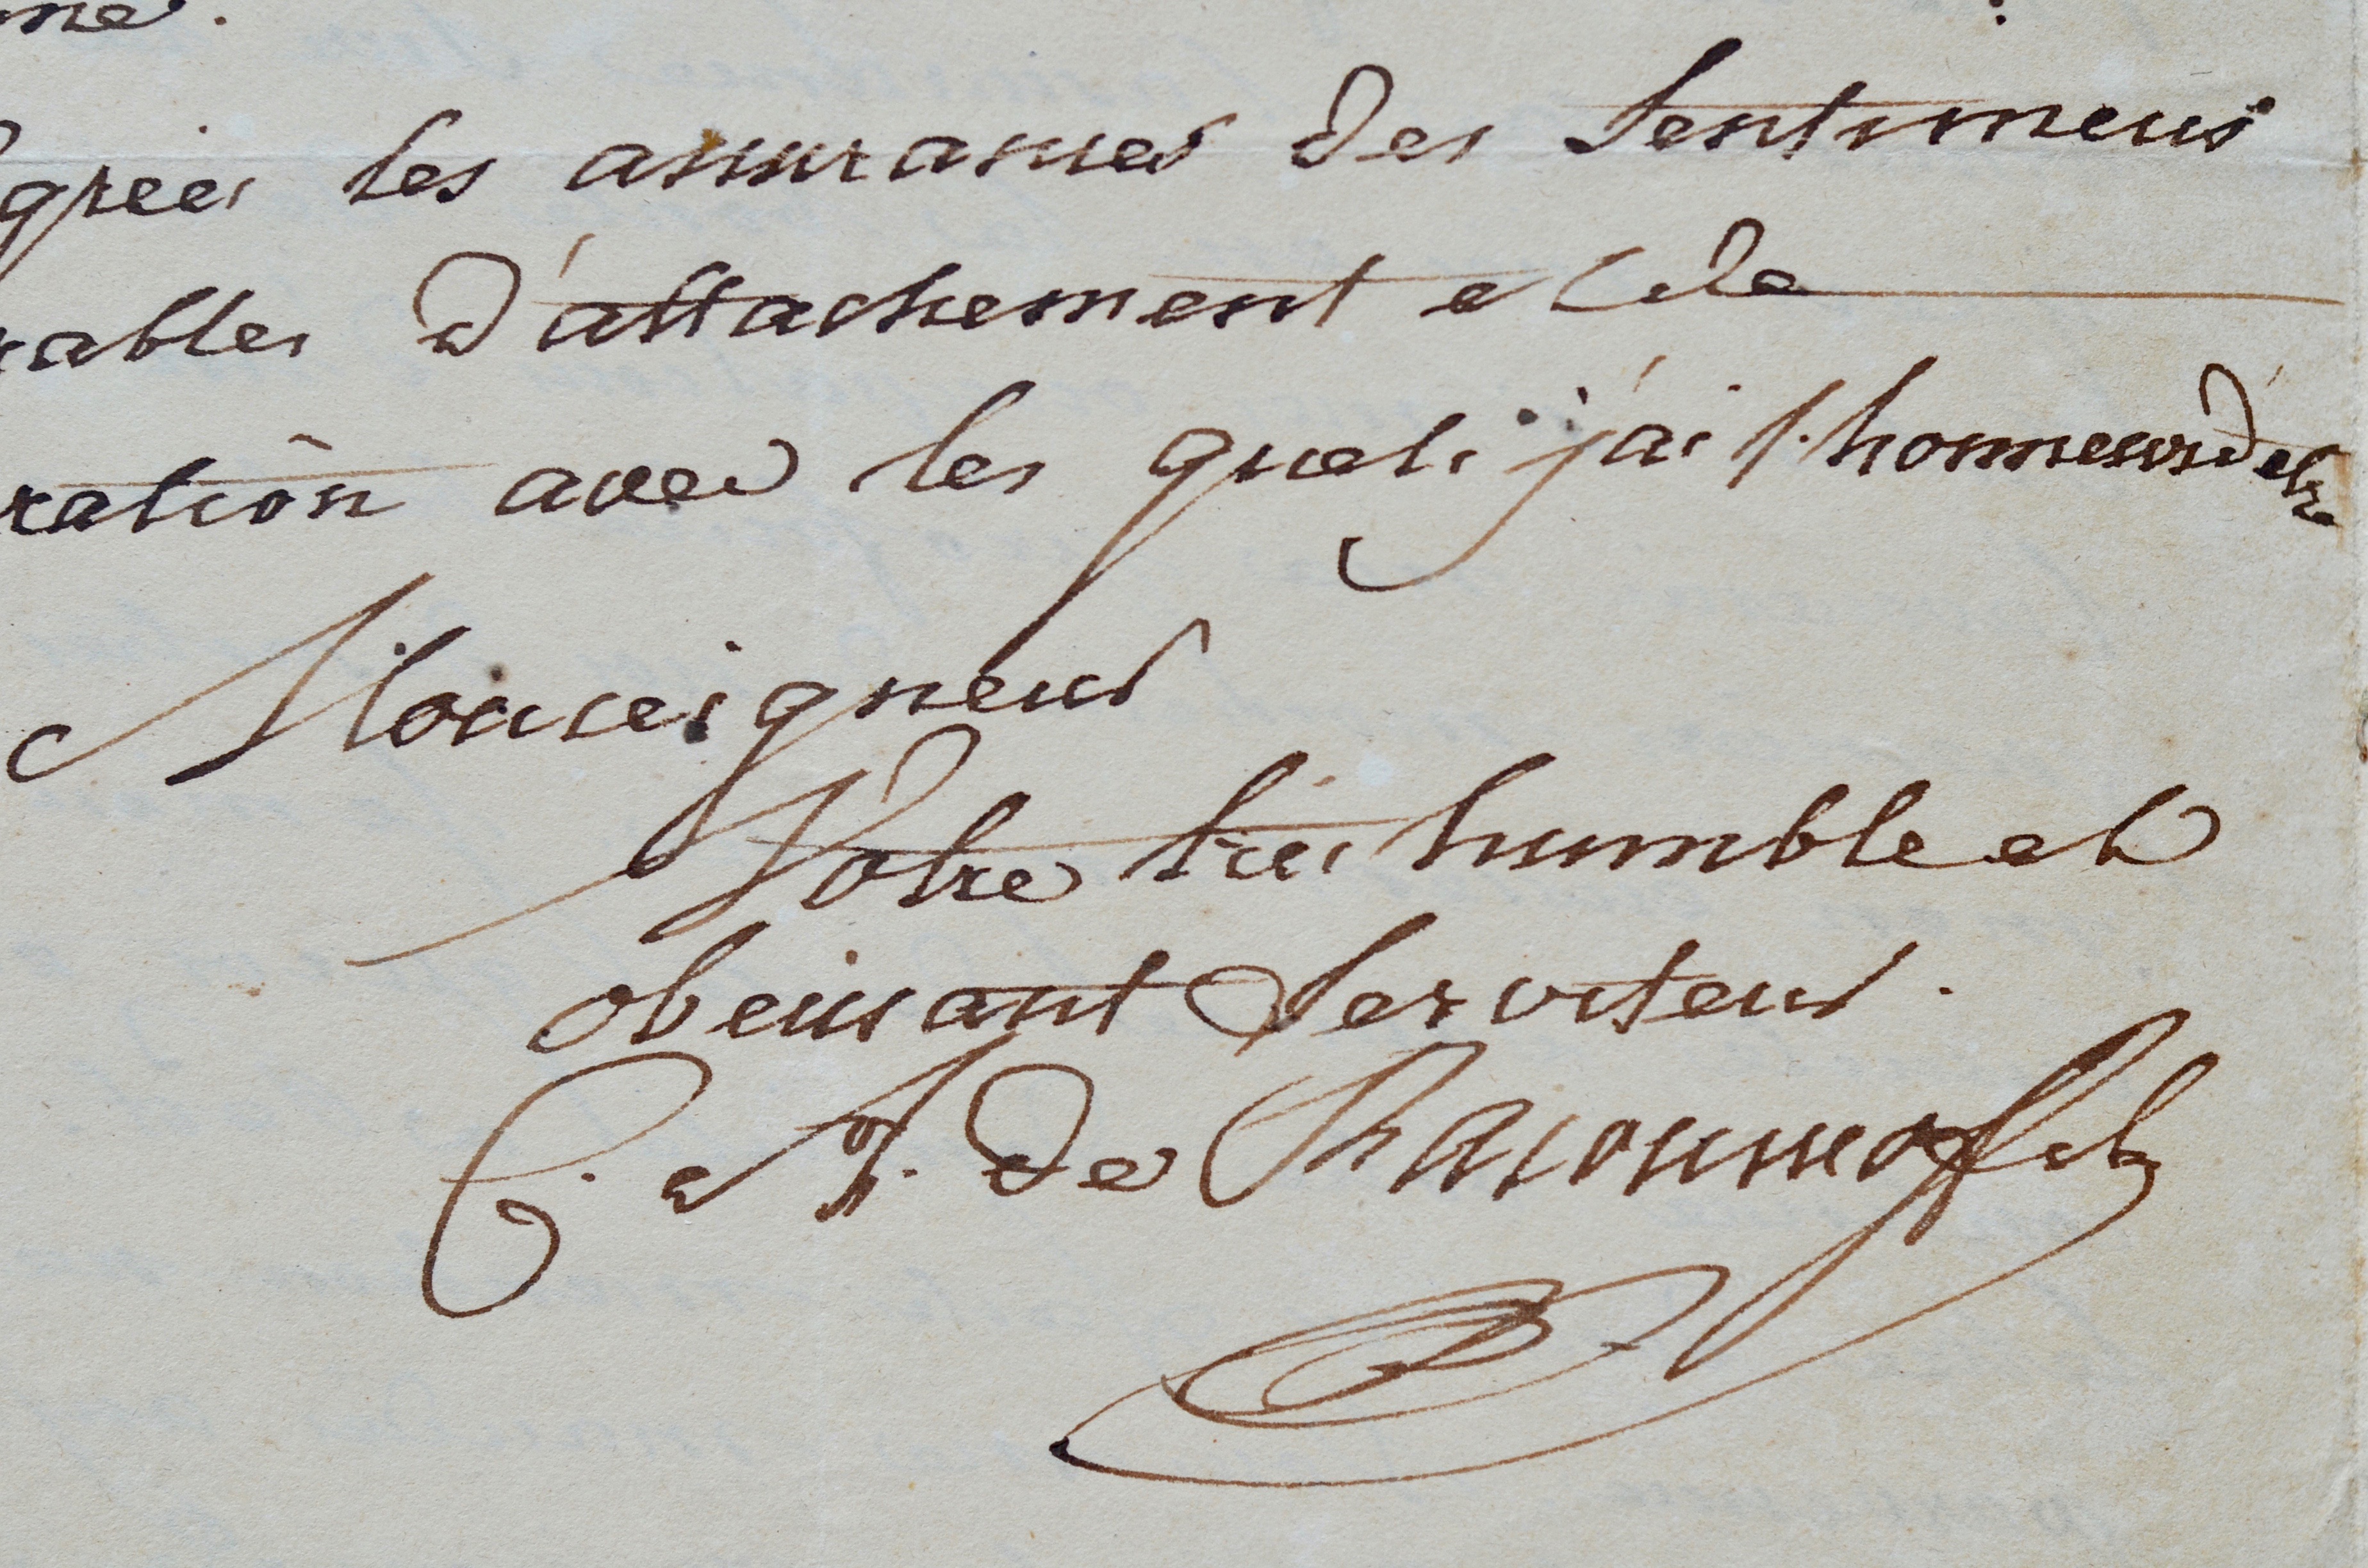 me.
grées les assurances des Sentimens
rables d'attachement et de
ration avec les quels j'ai l'honneur d'etre
Monseigneur
Votre tres humble et
obeissant Serviteur.
C. de